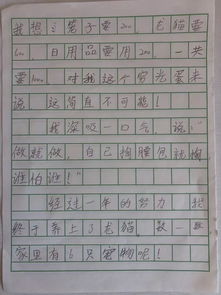 我想：笼子要200，龙猫要
600，日用品要用200，一共
要1000，对我这个穷光蛋来
说，这简直不可能！
我深吸一口气，说：“
做就做，自己掏腰包就掏
谁怕谁！”
经过一年的努力，我
终于养上了龙猫，数一数
家里有6只宠物呢！